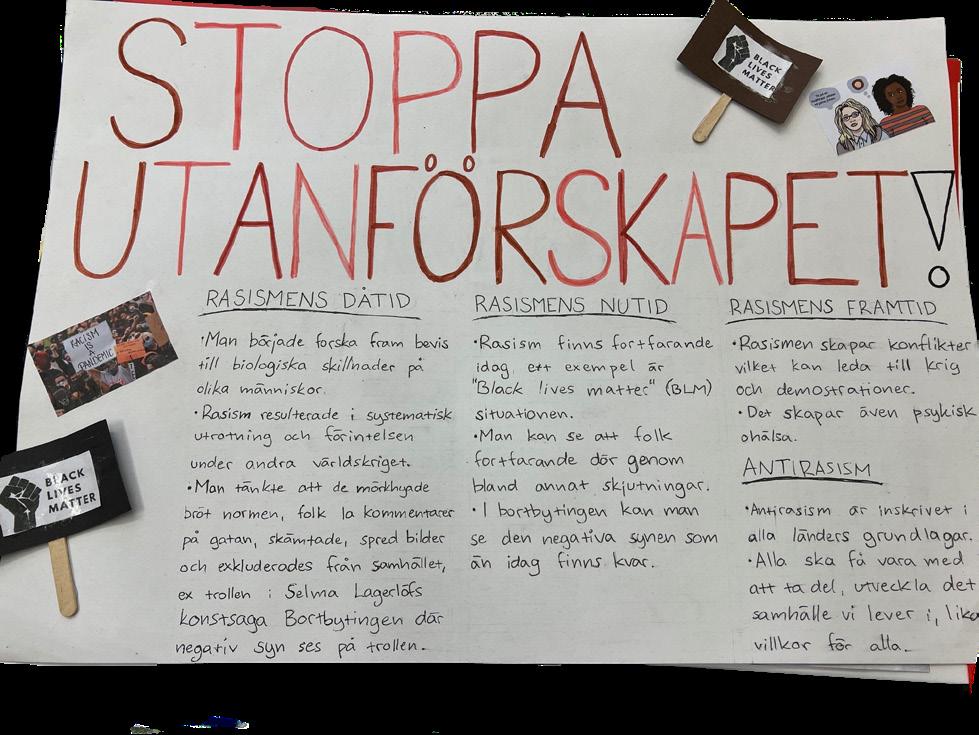 STOPPA
UTANFÖRSKAPET!
BLACK
LIVES
MATTER
RACISM
IS
A
PANDEMIC
BLACK
LIVES
MATTER
RASISMENS DÅTID
•Man började forska fram bevis
till biologiska skillnader på
olika människor.
•Rasism resulterade i systematisk
utrotning och förintelsen
under andra världskriget.
•Man tänkte att de mörkhyade
bröt normen, folk la kommentarer
på gatan, skämtade, spred bilder
och exkluderades från samhället,
ex trollen i Selma Lagerlöfs
konstsaga Bortbytingen där
negativ syn ses på trollen.
RASISMENS NUTID
•Rasism finns fortfarande
idag, ett exempel är
"Black lives matter" (BLM)
situationen.
•Man kan se att folk
fortfarande dör genom
bland annat skjutningar.
•I bortbytingen kan man
se den negativa synen som
än idag finns kvar.
RASISMENS FRAMTID
•Rasismen skapar konflikter
vilket kan leda till krig
och demostrationer.
•Det skapar även psykisk
ohälsa.
ANTIRASISM
•Antirasism är inskrivet i
alla länders grundlagar.
•Alla ska få vara med
att ta del, utveckla det
samhälle vi lever i, lika
villkor för alla.